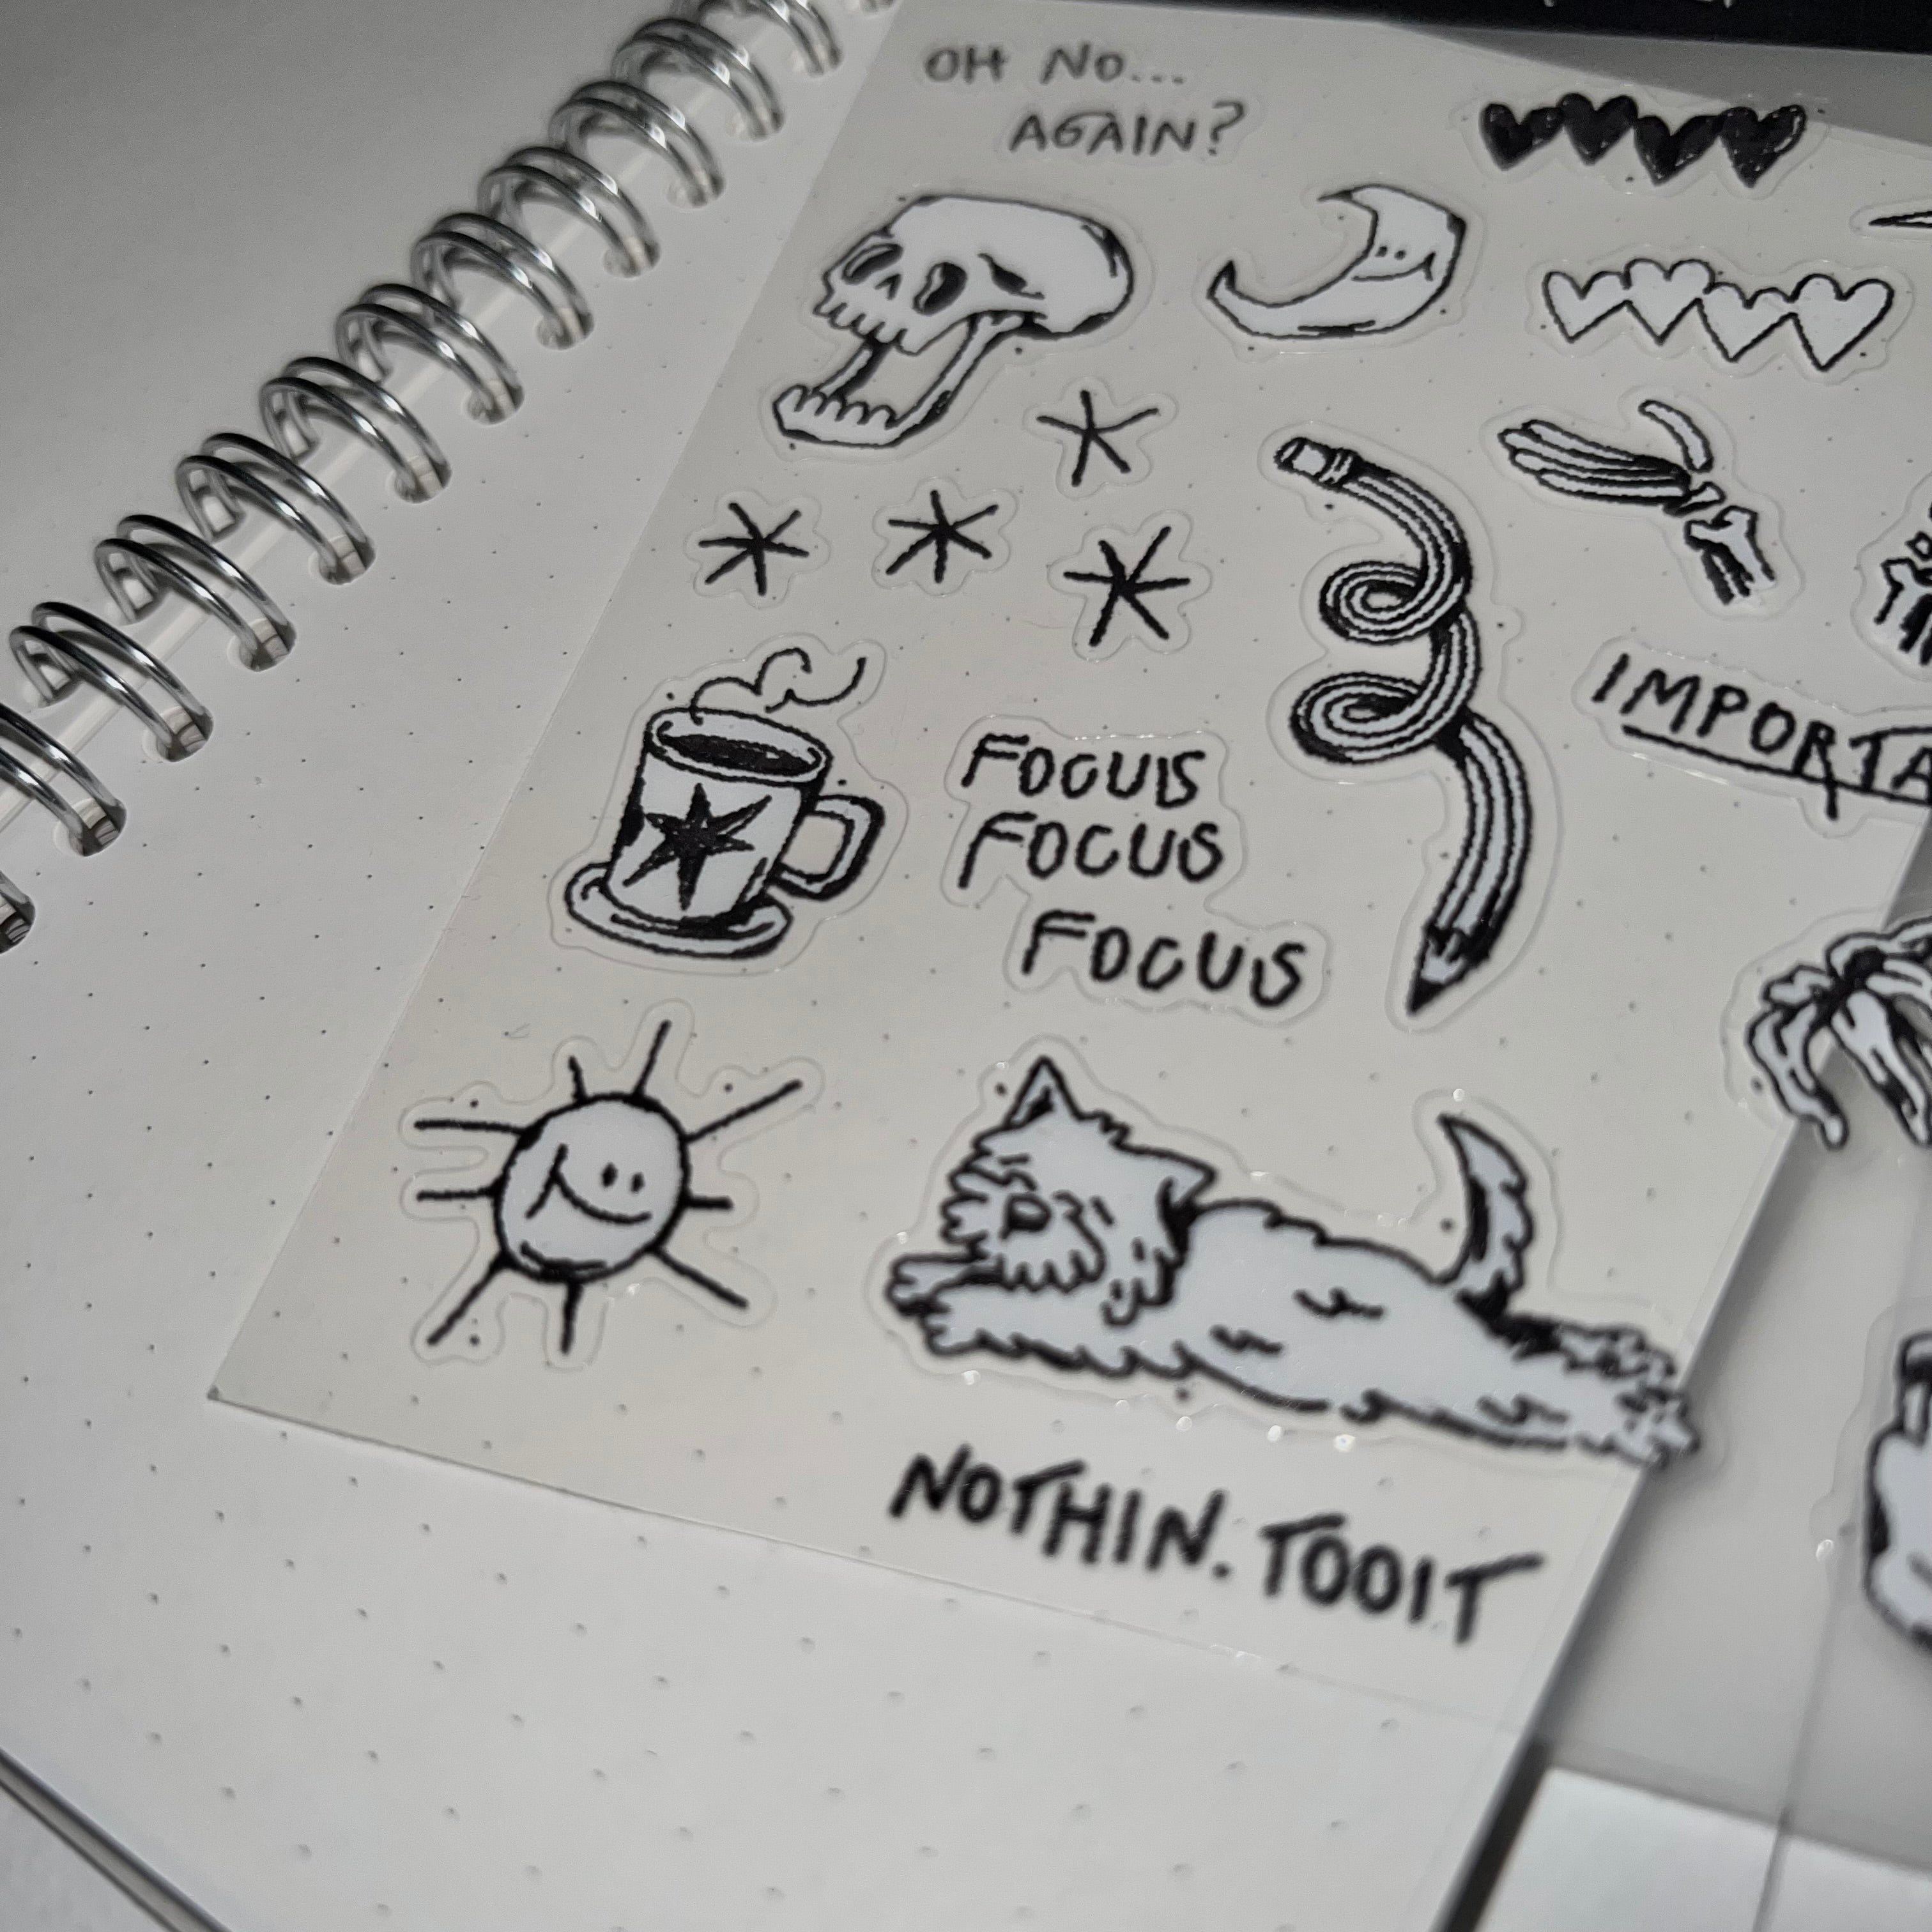 OH NO...
AGAIN?
IMPORTA
FOCUS
FOCUS
FOCUS
NOTHIN.TOOIT